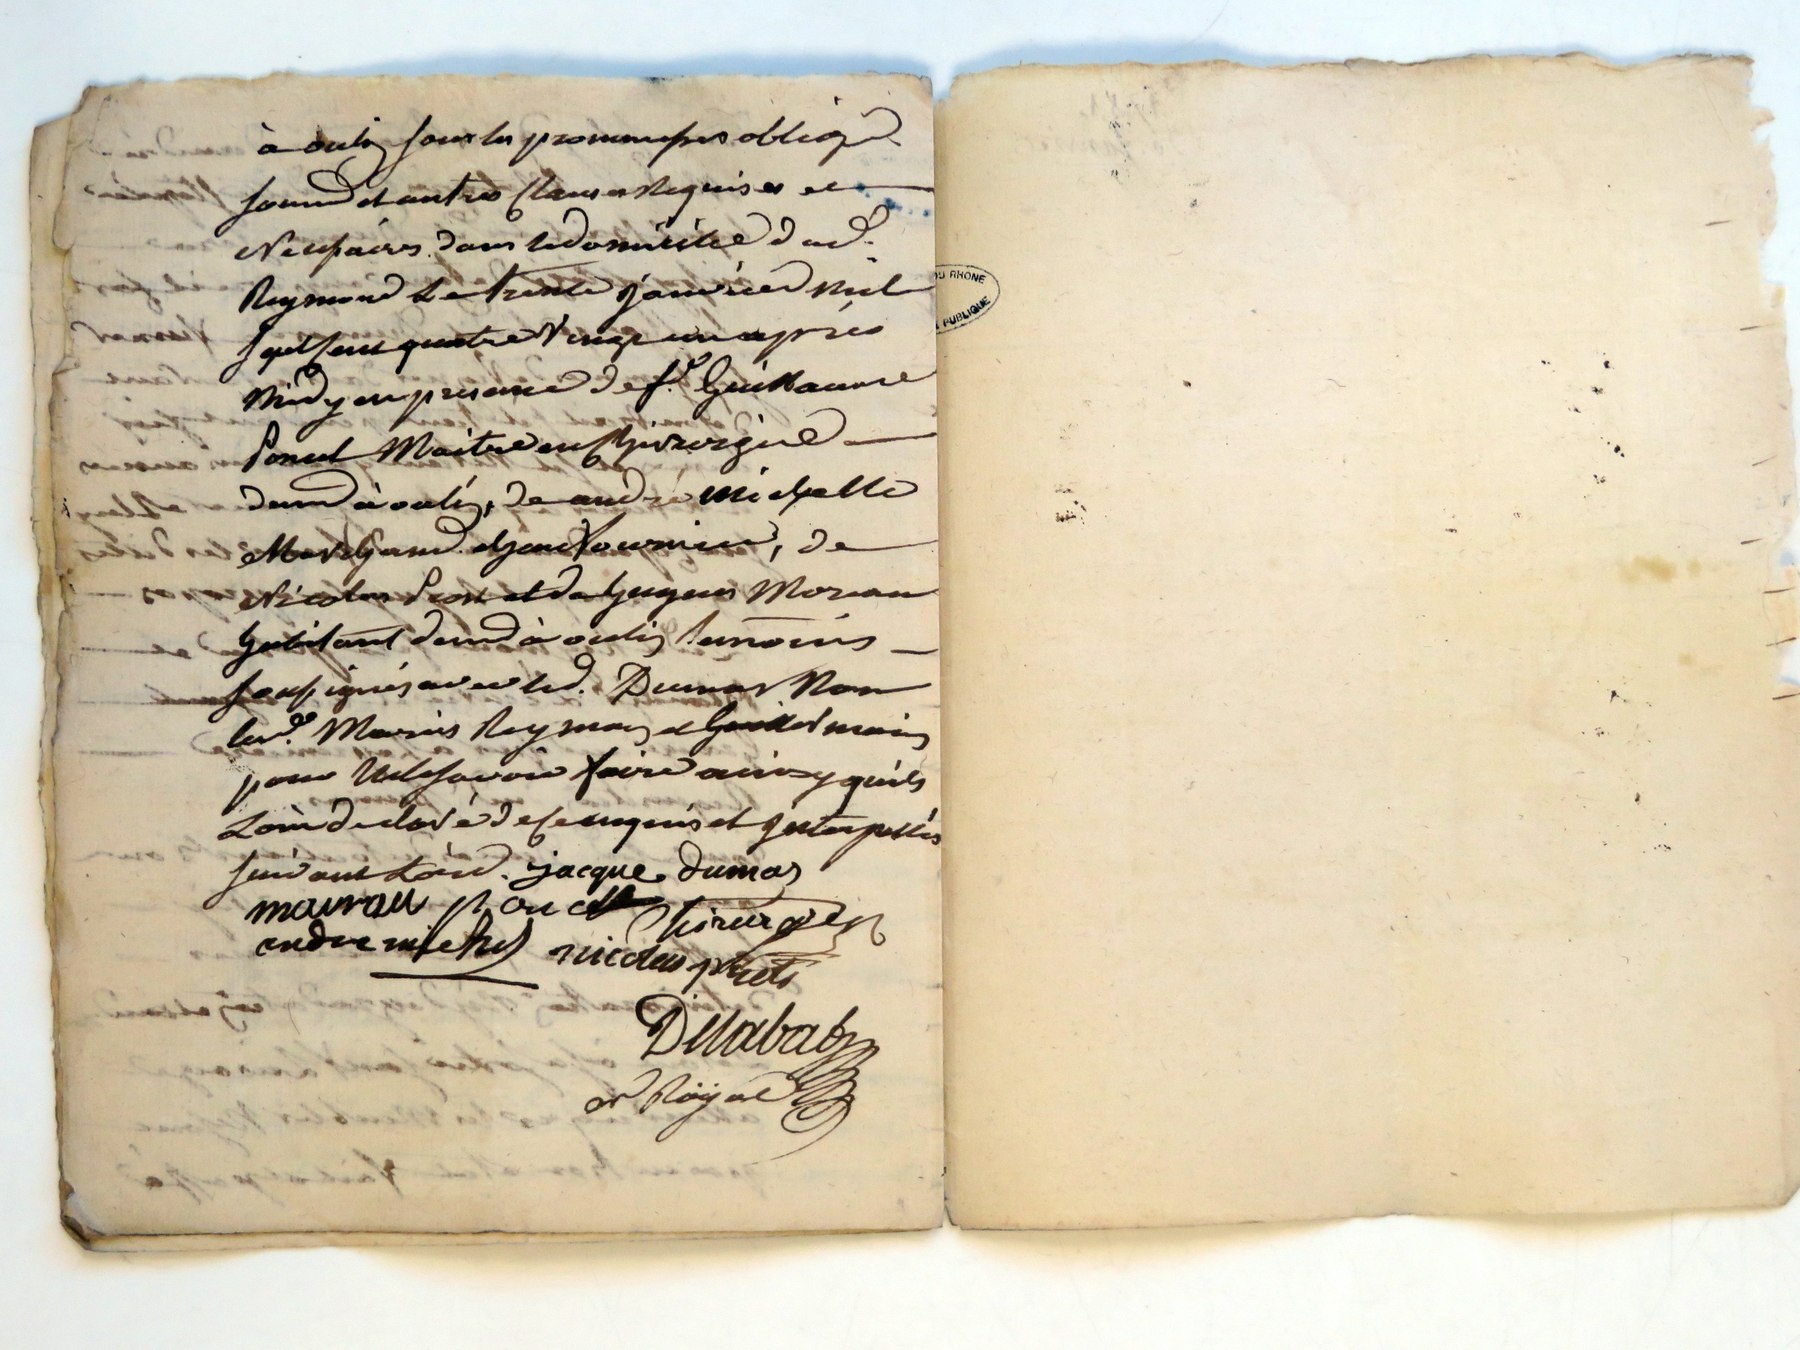 à oulin sous les prommesses obligõn
soumõn et autres clauses Requises et
Necessaires. dans le domicile dud.
Reymond Le Trente janvier Mil
sept cent quatre Vingt un après
Midy en presence de sr. Guillaume
Poncet Maitre en Chirurgie
demt à oulin, de andré michelle
Marchand et jean fournier, de
Nicolas et de hugues Moreau
habitant demt à oulin temoins
soussignés avec led. Dumas Non
led. Reymond et Guillermain
pour Ne le savoir faire ainsy qu'ils
L'ont declaré de ce enquis et jnterpellés
suivant L'ord. jacque dumas
mourau poncet Chirurgien
andre michel nicolas
Dellabat
nre Royal
DU RHONE
PUBLIQUE